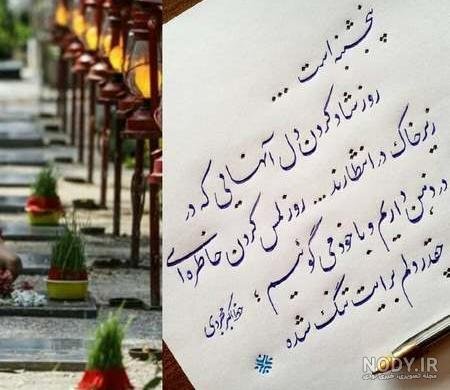 پنجشنبه است ...
روز شاد کردن دل آنهایی که در
زیر خاک در انتظارند ... روز لمس کردن خاطره ای
در ذهن داریم و با خود می گوئیم ؛
چقدر دلم برایت تنگ شده
NODY.IR
مجله تصویری، خبری نودی